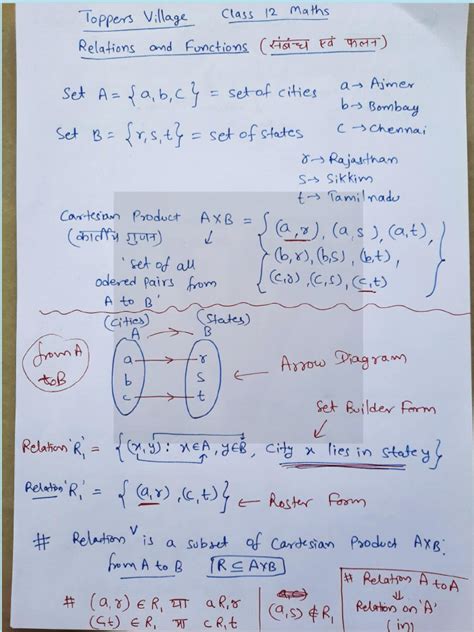 Toppers Village Class 12 Maths
Relations and Functions (संबंध एवं फलन)
Set A = {a, b, c} = set of cities
a → Ajmer
b → Bombay
c → Chennai
Set B = {r, s, t} = set of states
r → Rajasthan
s → Sikkim
t → Tamilnadu
Cartesian Product A×B = {(a, r), (a, s), (a, t),
(b, r), (b, s), (b, t),
(c, r), (c, s), (c, t)}
(कार्तीय गुणन) ↓
'set of all
odered pairs from
A to B'
(cities) (States)
A → B
from A
to B
a → r
b s
c → t
← Arrow Diagram
Set Builder Form
Relation 'R₁' = {(x, y) : x ∈ A, y ∈ B, city x lies in state y}
Relation 'R₁' = {(a, r), (c, t)} ← Roster Form
# Relation is a subset of Cartesian Product A×B.
from A to B R ⊆ A×B
# (a, r) ∈ R, या a R₁ r
(c, t) ∈ R, या c R₁ t
(a, s) ∉ R₁
# Relation A to A
↓
Relation on 'A'
(in)